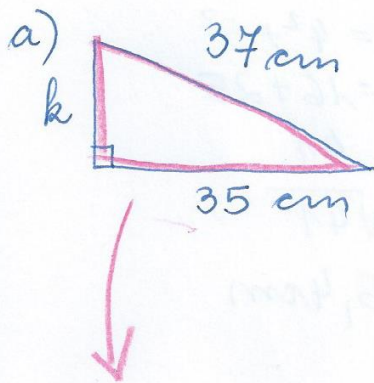 a)
37 cm
k
35 cm